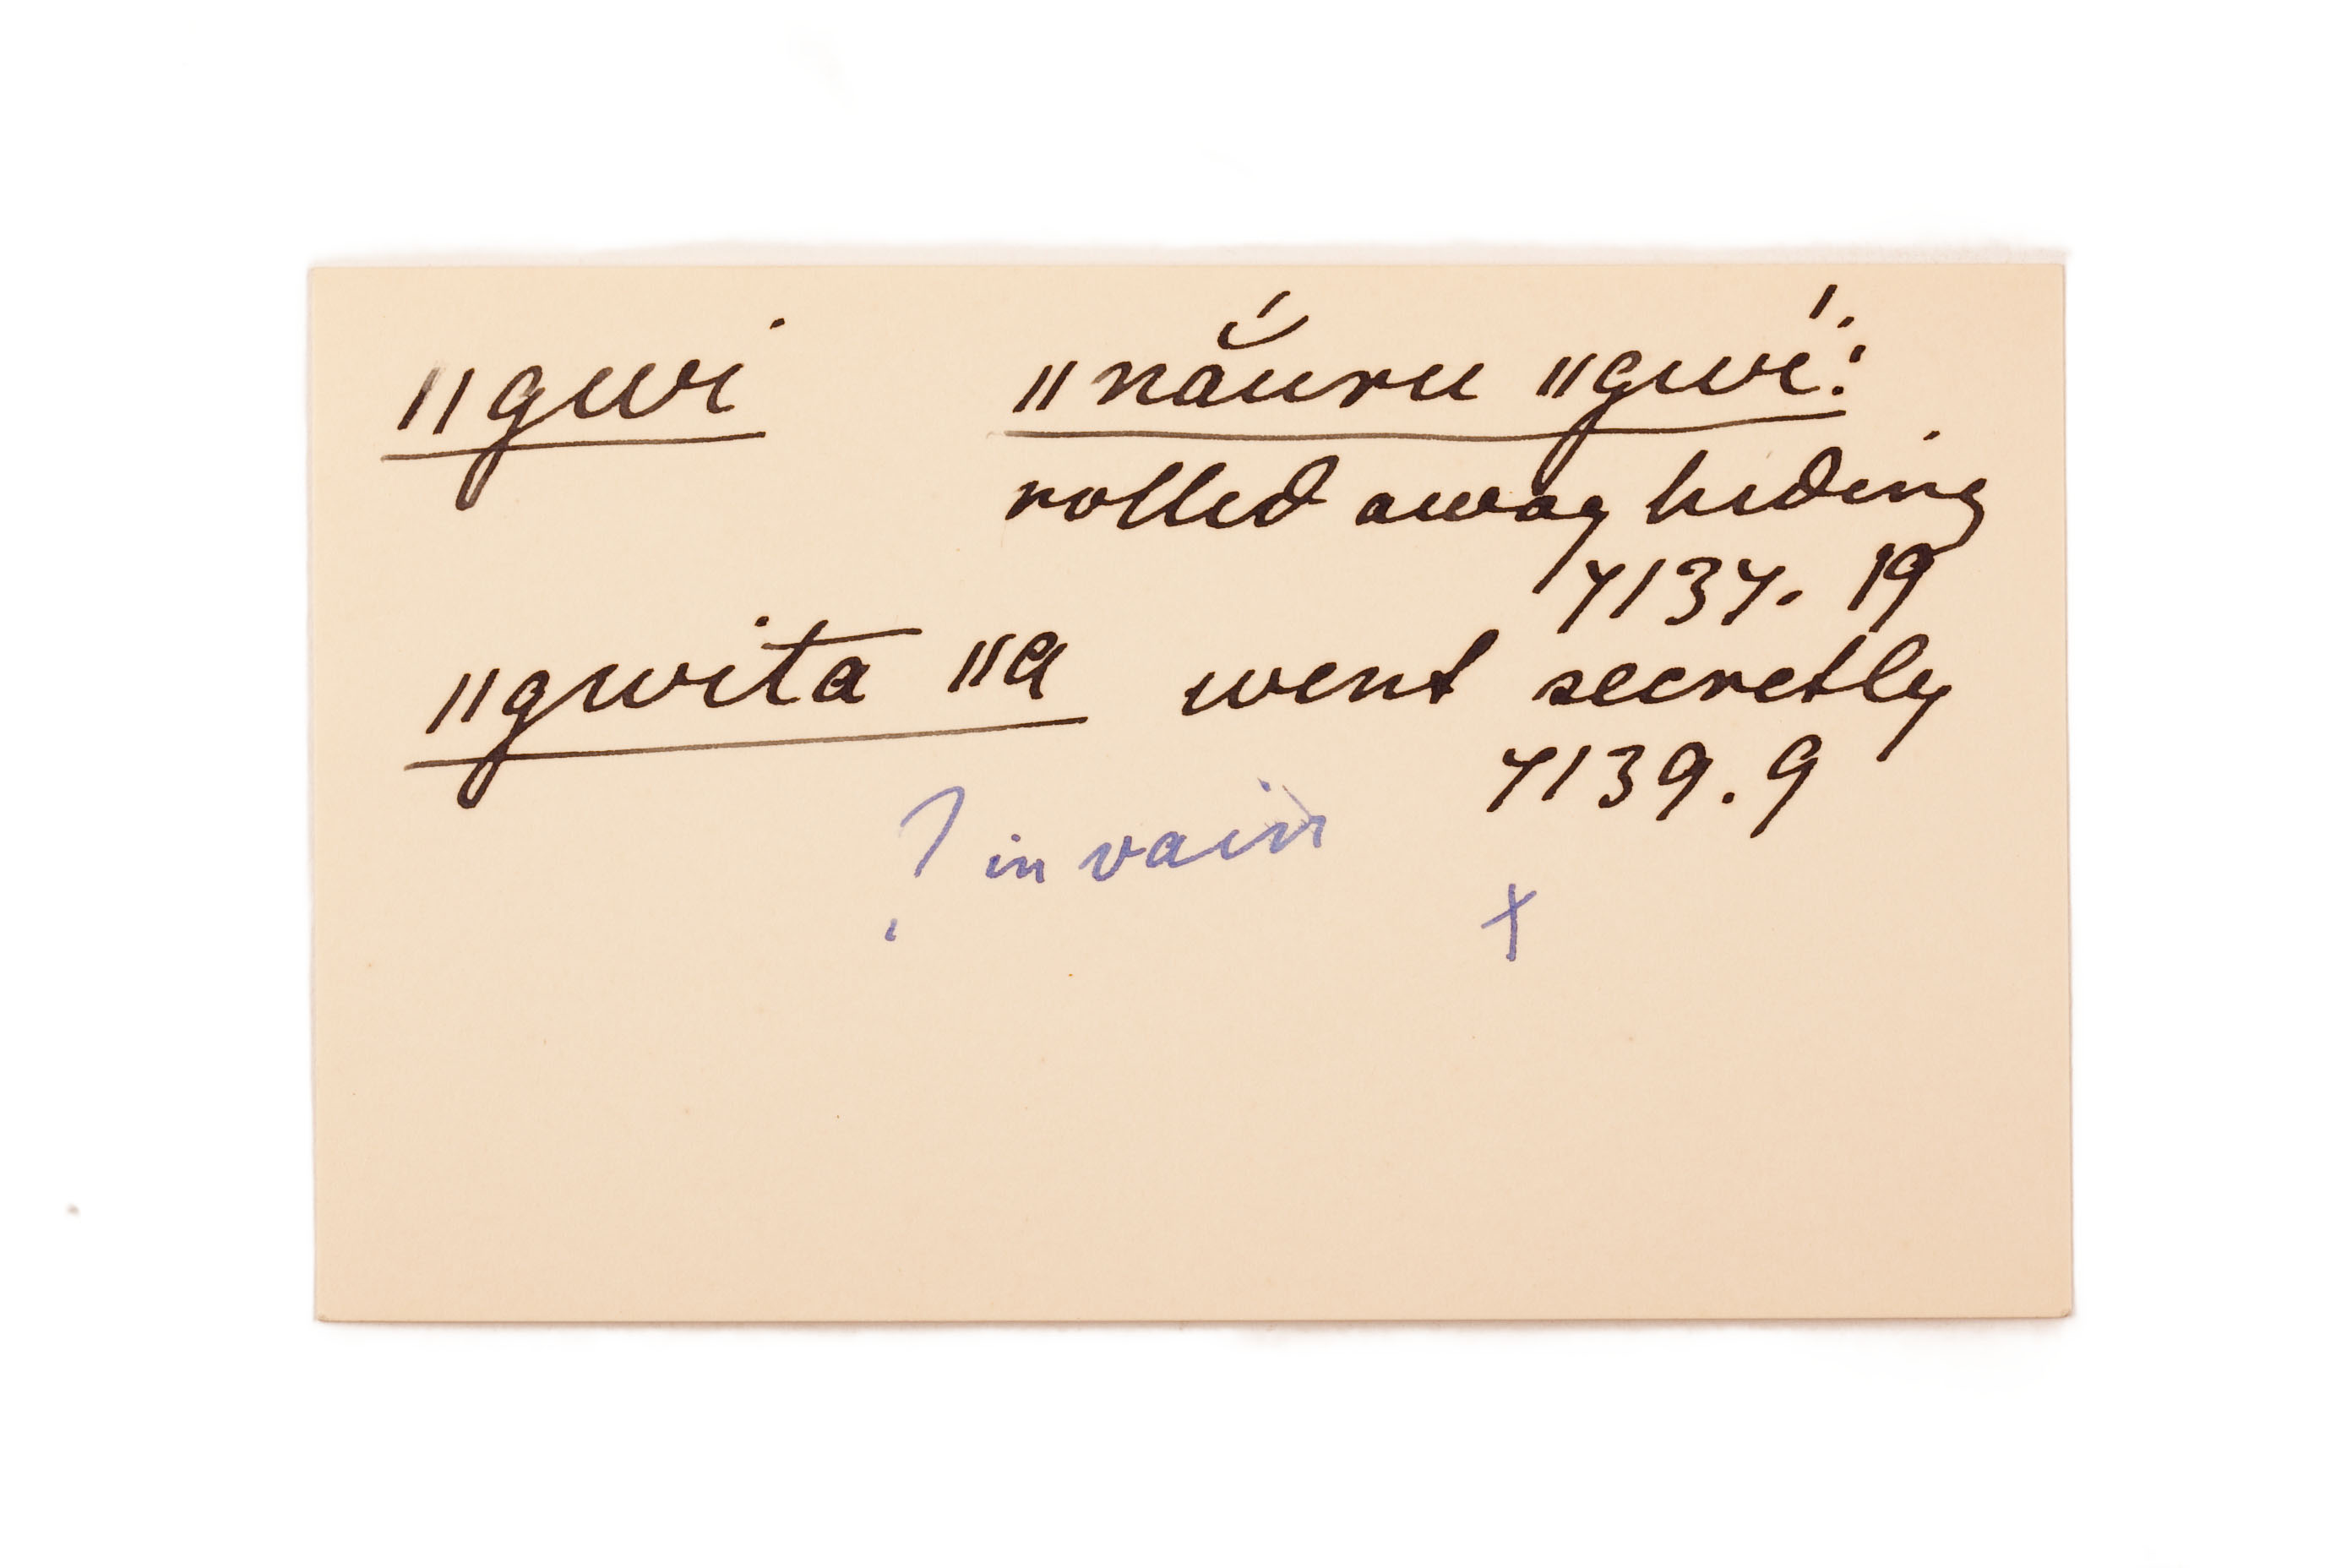 ǁgwi ǁnắuru ǁgwí:
rolled away hiding
7137. 19
ǁgwita ǁa went secretly
7139.9
? in vain
x